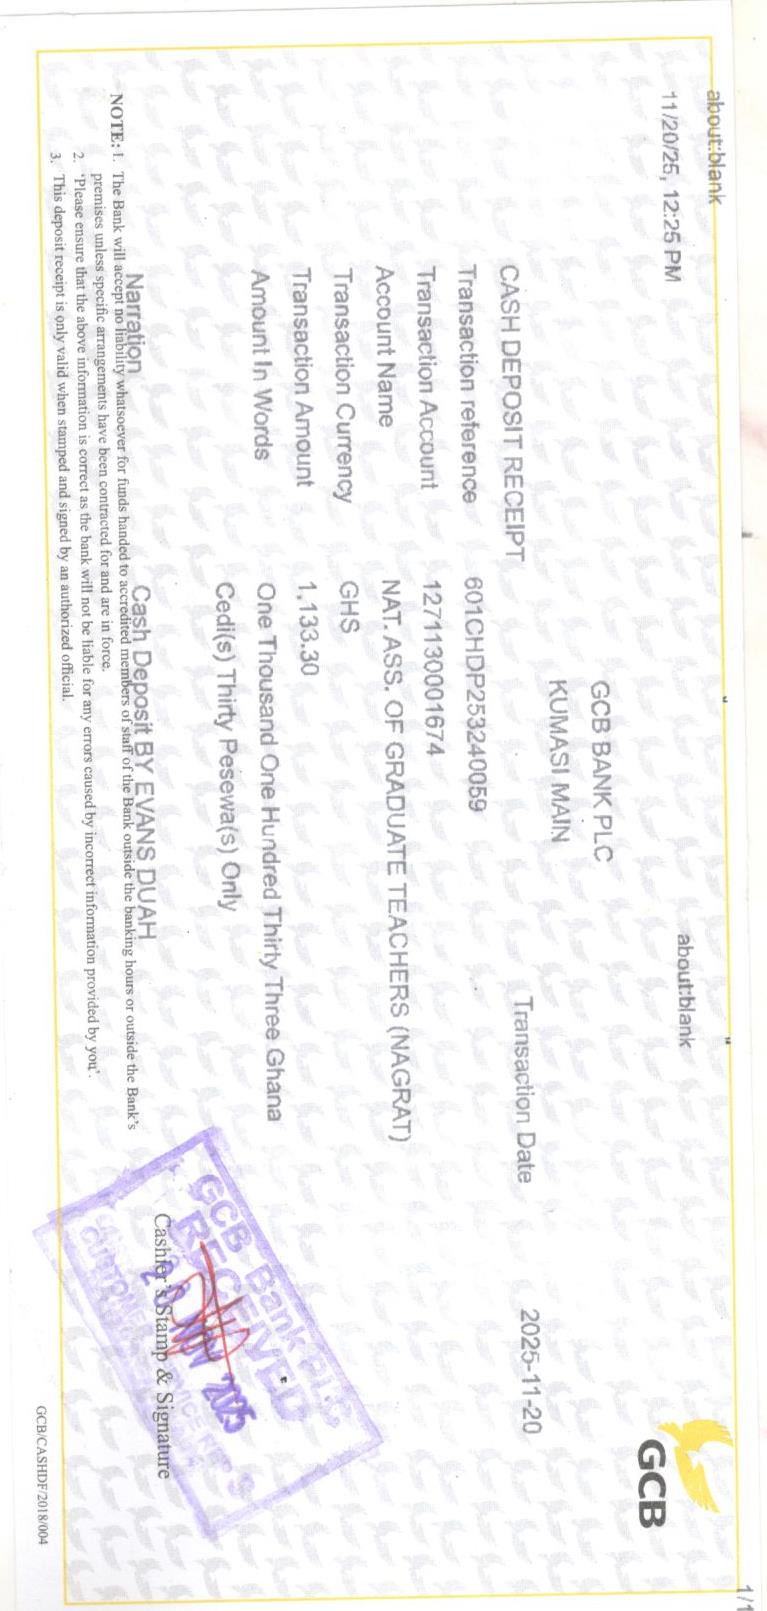 about:blank about:blank
11/20/25, 12:25 PM 1/1
GCB
GCB BANK PLC
KUMASI MAIN
CASH DEPOSIT RECEIPT Transaction Date 2025-11-20
Transaction reference 601CHDP253240059
Transaction Account 1271130001674
Account Name NAT. ASS. OF GRADUATE TEACHERS (NAGRAT)
Transaction Currency GHS
Transaction Amount 1,133.30
Amount In Words One Thousand One Hundred Thirty Three Ghana
Cedi(s) Thirty Pesewa(s) Only
Narration Cash Deposit BY EVANS DUAH
GCB Bank PLC
RECEIVED
20 NOV 2025
Cashier's Stamp & Signature
NOTE: 1. The Bank will accept no liability whatsoever for funds handed to accredited members of staff of the Bank outside the banking hours or outside the Bank's
premises unless specific arrangements have been contracted for and are in force.
2. 'Please ensure that the above information is correct as the bank will not be liable for any errors caused by incorrect information provided by you'.
3. This deposit receipt is only valid when stamped and signed by an authorized official.
GCB/CASHDF/2018/004